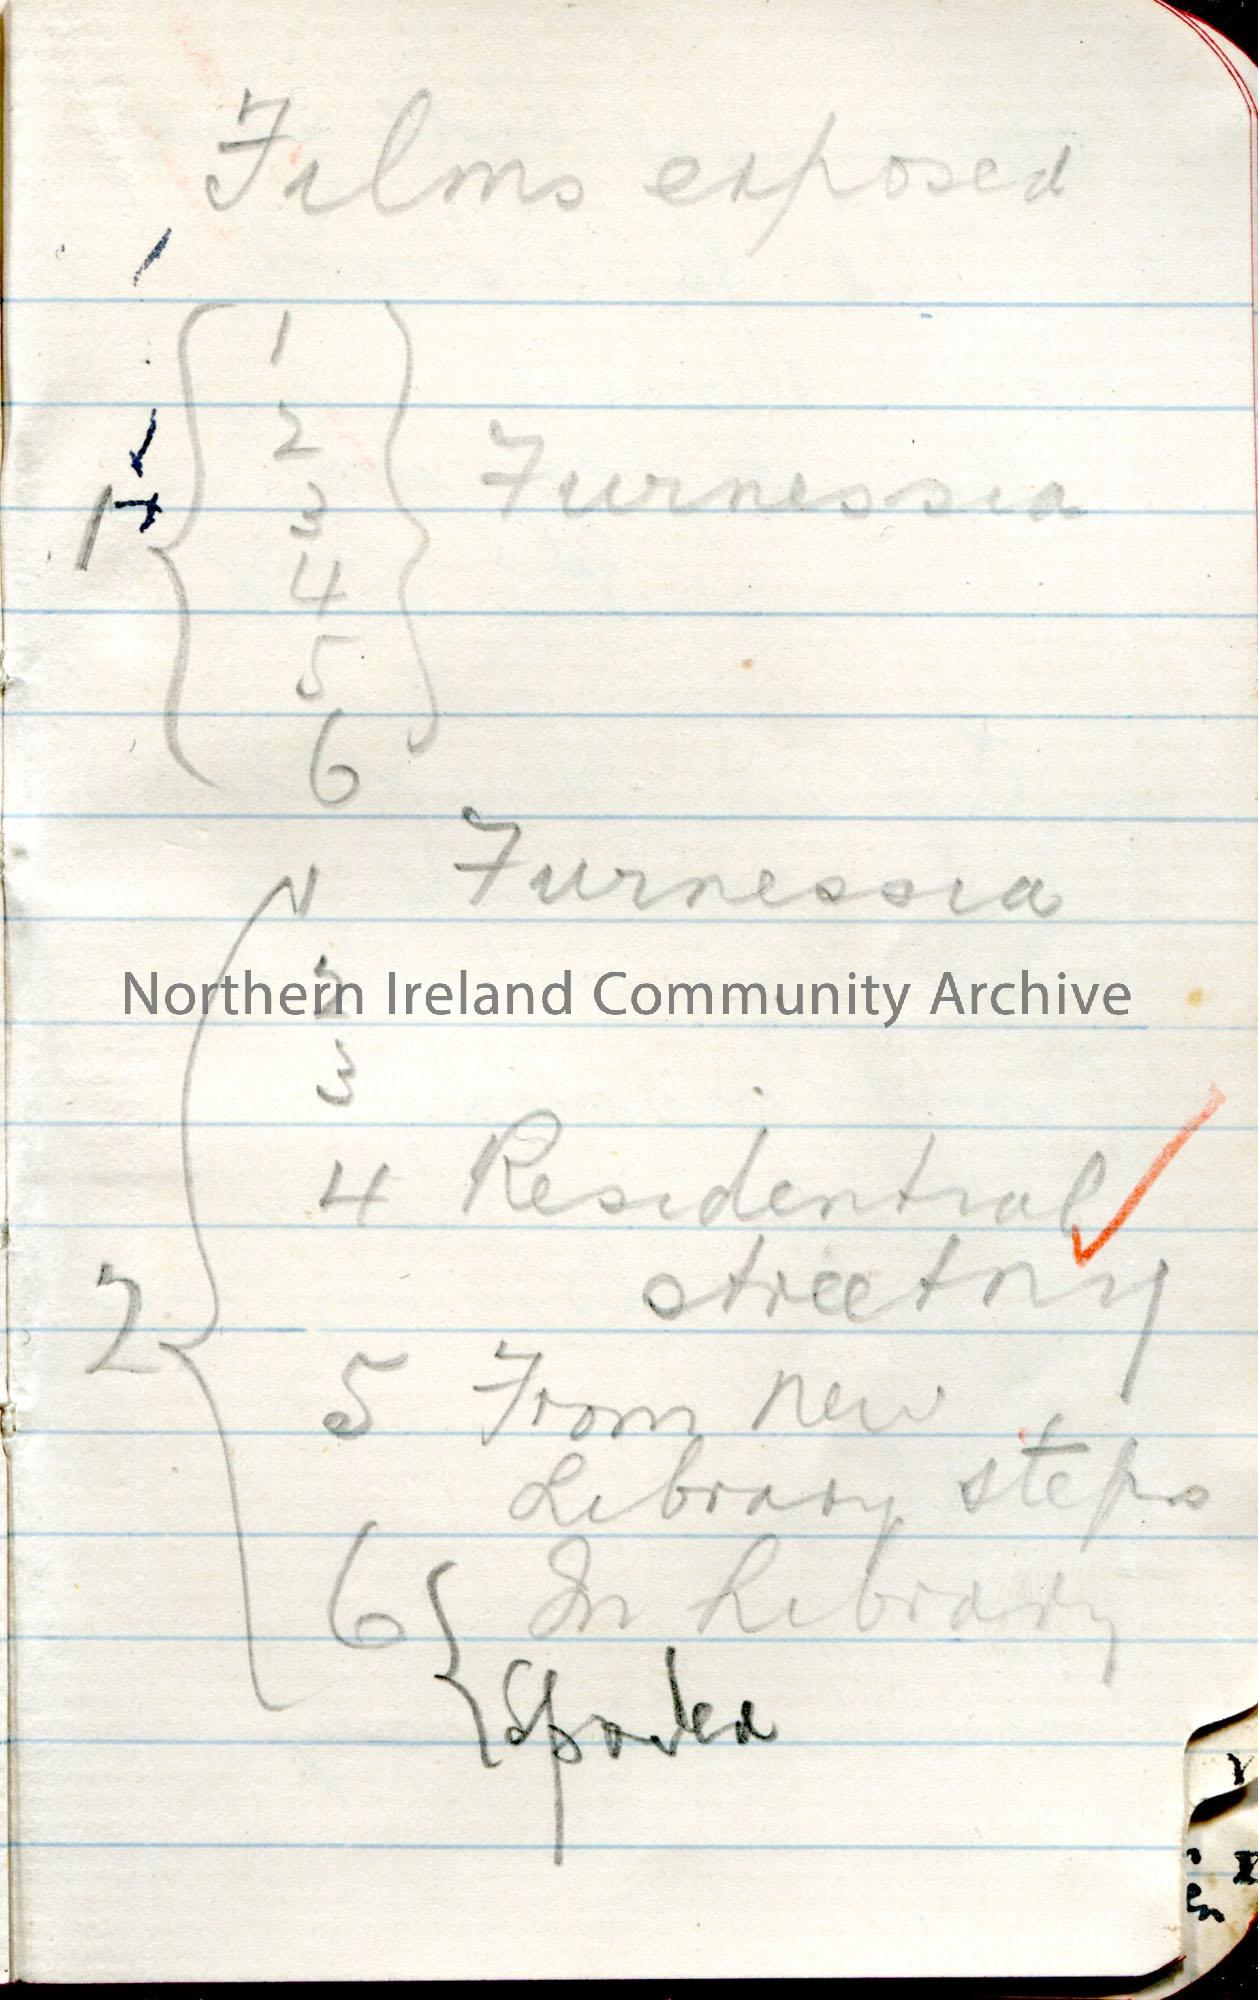 Films exposed
1
2
3
1 Furnessia
4
5
6
1 Furnessia
2
Northern Ireland Community Archive
3
4 Residential
2
5 From new
Library steps
6 In Library